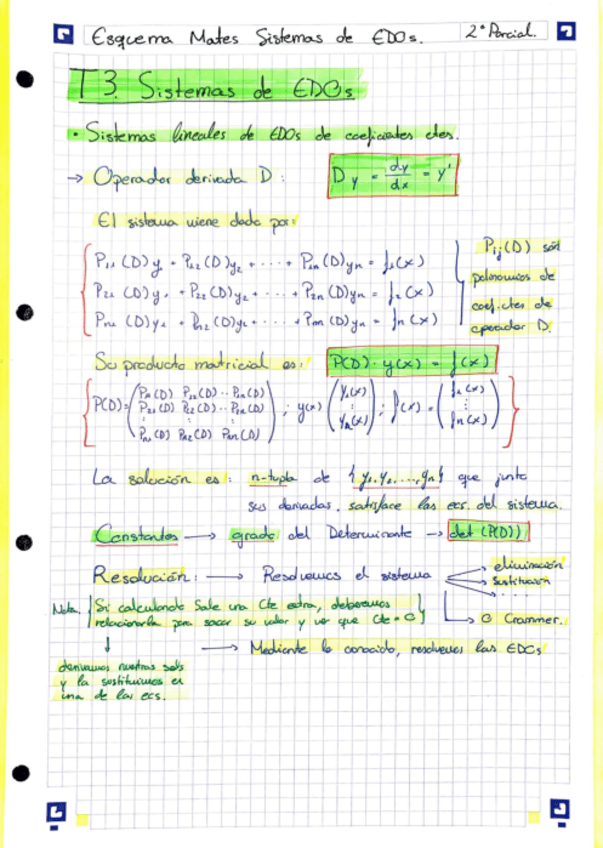 Esquema Mates Sistemas de EDOs. 2º Parcial.
T3. Sistemas de EDOs
• Sistemas lineales de EDOs de coeficientes ctes.
→ Operador derivada D: Dy = dy/dx = y'
El sistema viene dado por:
P₁₁(D)y₁ + P₁₂(D)y₂ + ... + P₁ₙ(D)yₙ = f₁(x)
P₂₁(D)y₁ + P₂₂(D)y₂ + ... + P₂ₙ(D)yₙ = f₂(x)
Pₙ₁(D)y₁ + Pₙ₂(D)y₂ + ... + Pₙₙ(D)yₙ = fₙ(x)
Pᵢⱼ(D) són
polinomios de
coef. ctes de
operador D.
Su producto matricial es: P(D)·y(x) = f(x)
P(D) = (P₁₁(D) P₁₂(D) ·· P₁ₙ(D)
P₂₁(D) P₂₂(D) ·· P₂ₙ(D)
⋮
Pₙ₁(D) Pₙ₂(D) Pₙₙ(D)) ; y(x) (y₁(x) ⋮ yₙ(x)) ; f(x) = (f₁(x) ⋮ fₙ(x))
La solución es: n-tupla de {y₁, y₂, ..., yₙ} que junto
sus derivadas, satisface las ecs. del sistema.
Constantes → grado del Determinante → det(P(D))
Resolución: → Resolvemos el sistema
eliminación
Sustitución
...
O Crammer.
Nota. Si calculando sale una Cte extra, deberemos
relacionarla para sacar su valor y ver que Cte = 0
↓
derivamos nuestras sols
y la sustituimos en
una de las ecs.
→ Mediante lo conocido, resolvemos las EDOs